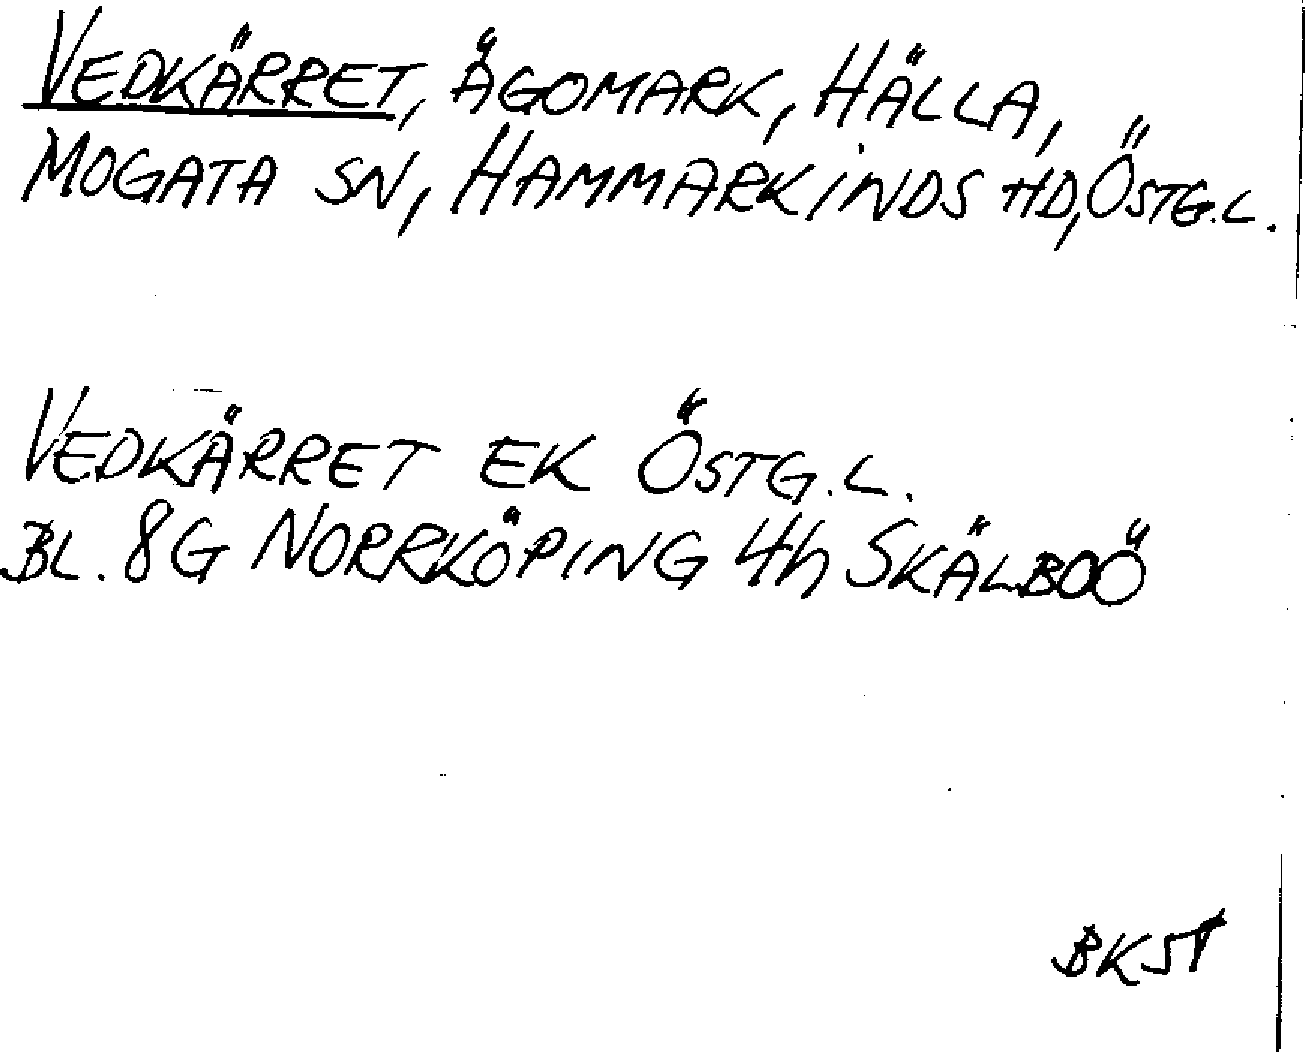 VEDKÄRRET, ÄGOMARK, HÄLLA,
MOGATA SN, HAMMARKINDS HD, ÖSTG.L.
VEDKÄRRET EK ÖSTG.L.
BL. 8G NORRKÖPING 4h SKÄLBOÖ
BKST